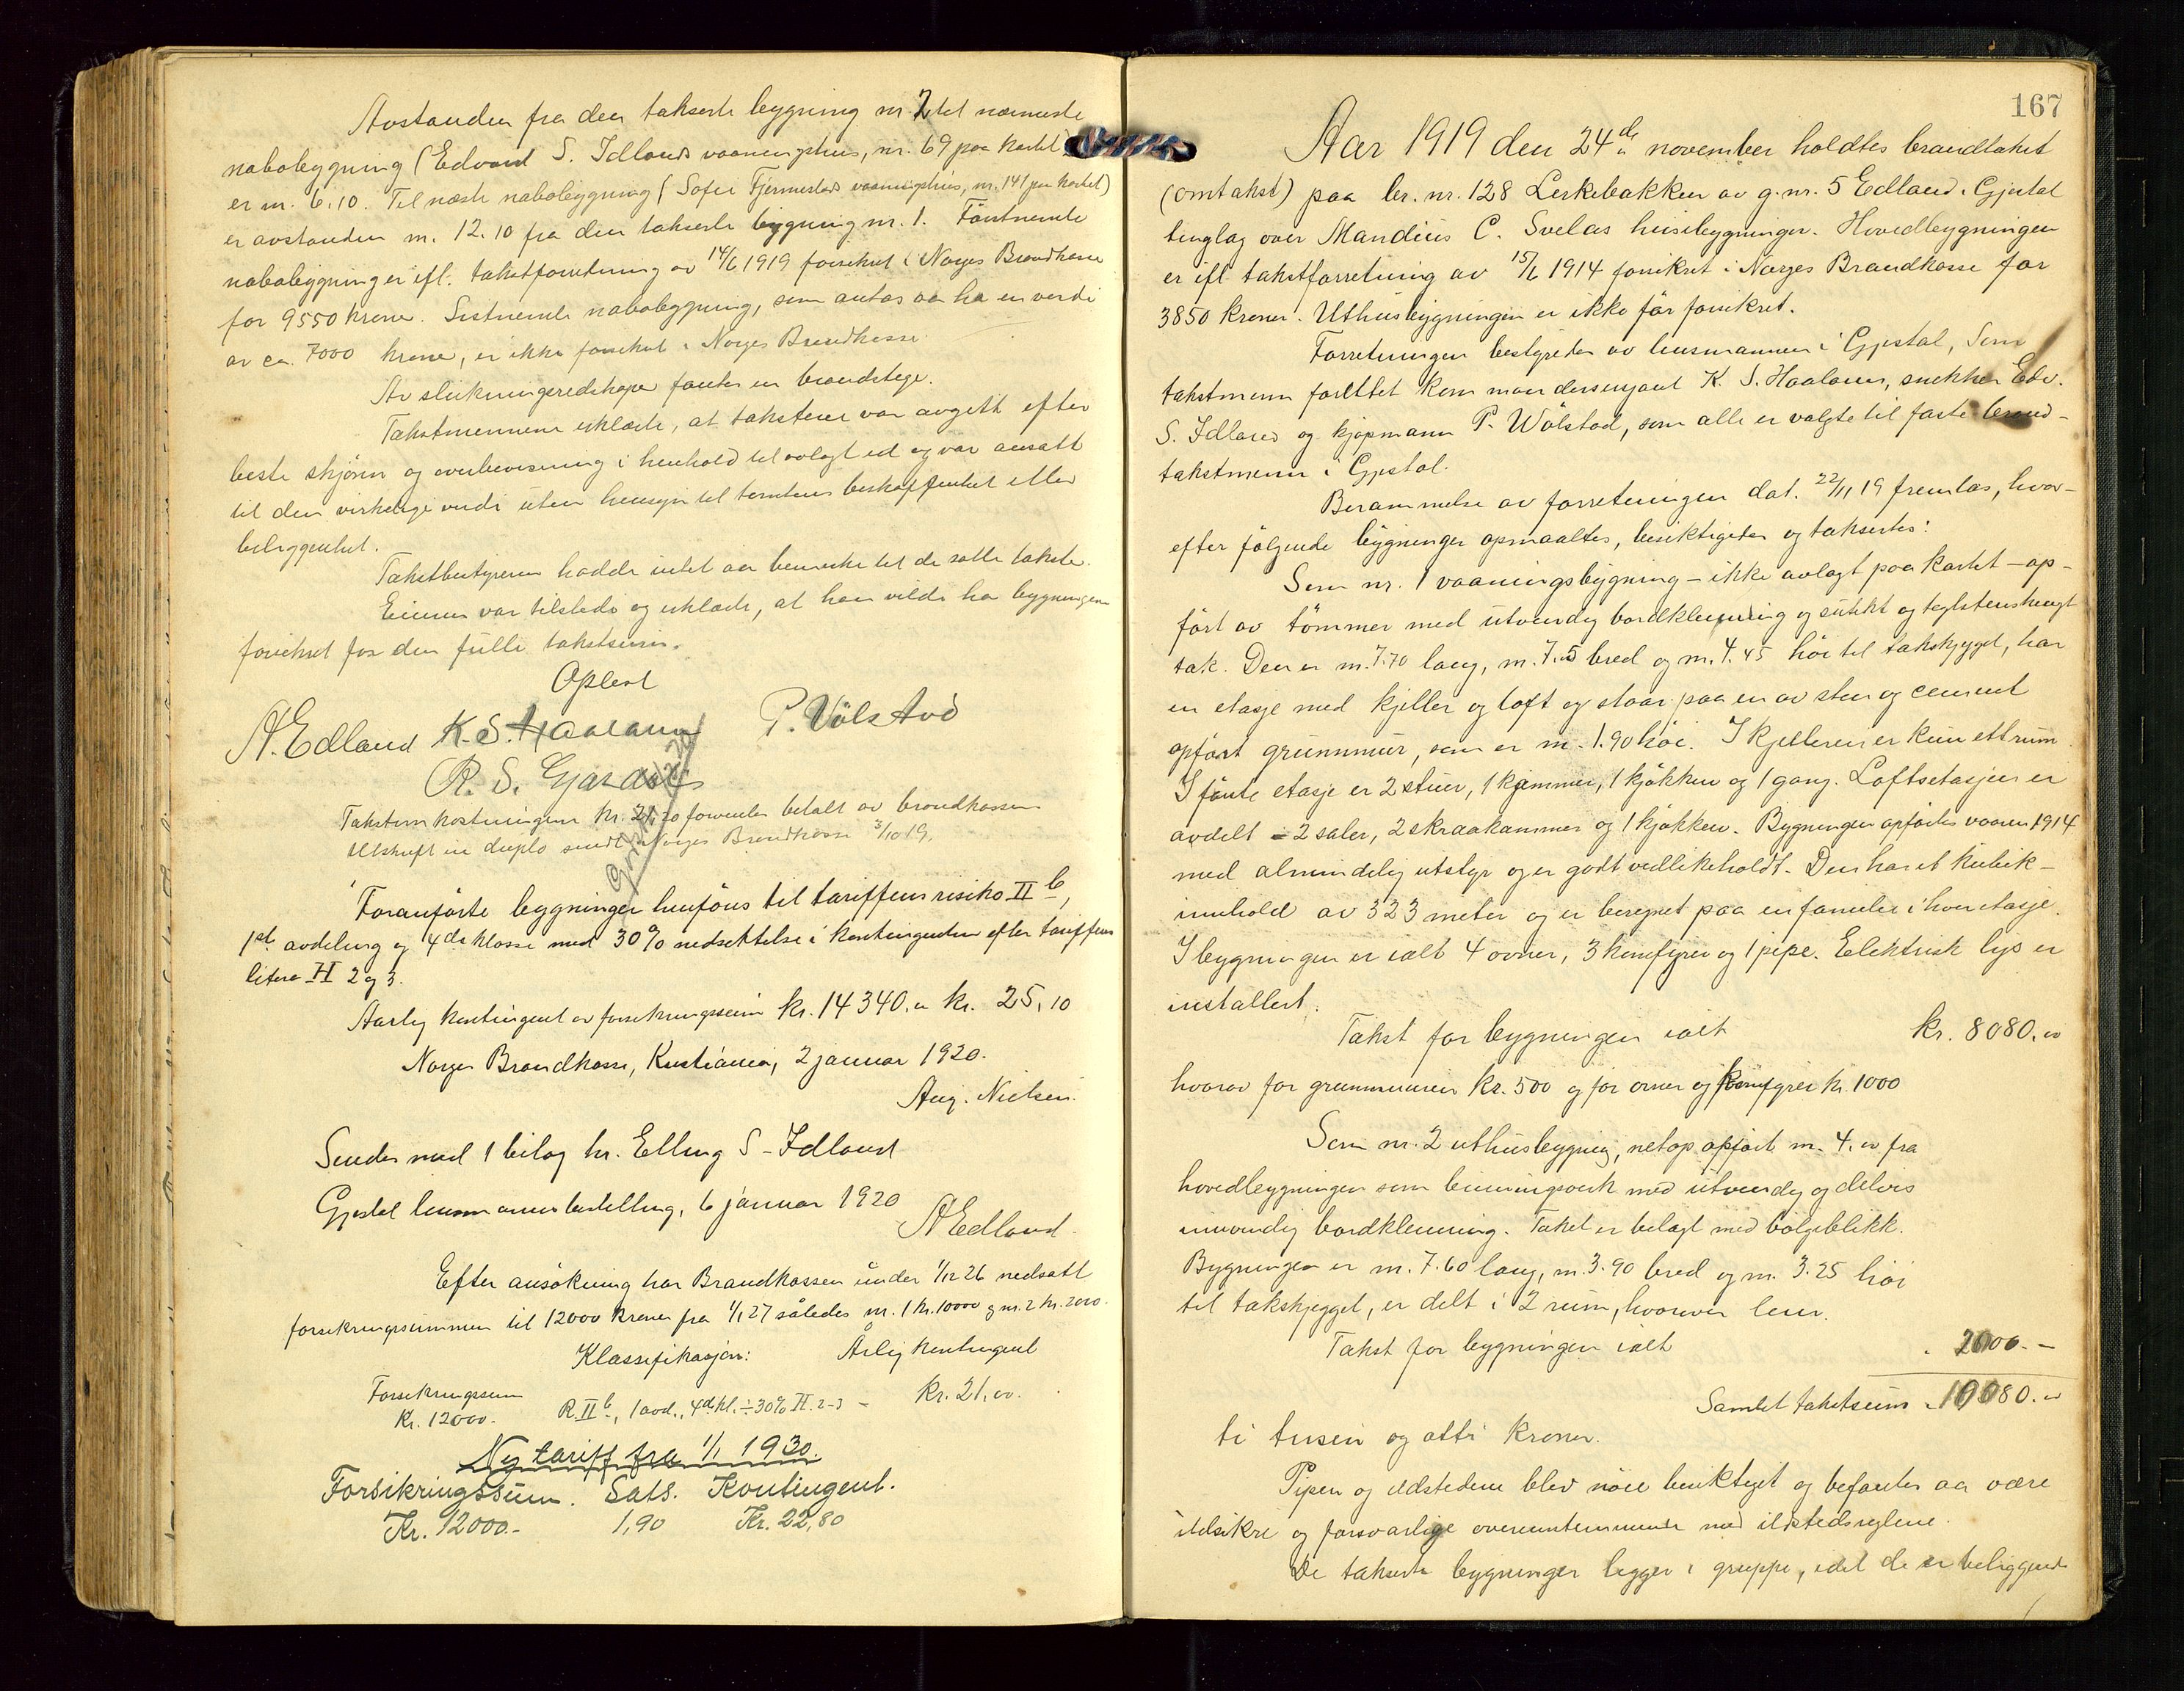 Avstanden fra den takserte bygning nr. 2 til nærmeste
nabobygning (Edvard S. Idlands vaaningshus, nr. 69 paa kartet)
er m. 6.10. Til næste nabobygning (Sofie Fjermestads vaaningshus, nr. 141 paa kartet)
er avstanden m. 12.10 fra den takserte bygning nr. 1. Förstnevnte
nabobygning er ifl. takstforretning av 14/6 1919 forsikret i Norges Brandkasse
for 9550 kroner. Sistnevnte nabobygning, som antas aa ha en verdi
av ca. 7000 kroner, er ikke forsikret i Norges Brandkasse.
Av slukningsredskaper fantes en brandstige.
Takstmennene erklærte, at taksterne var avgitt efter
beste skjönn og overbevisning i henhold til avlagt ed og var ansatt
til den virkelige verdi uten hensyn til tomtens beskaffenhet eller
beliggenhet.
Takstbestyreren hadde intet aa bemerke til de satte takster.
Eieren var tilstede og erklærte, at han vilde ha bygningene
forsikret for den fulle takstsum.
Oplest
A. Edland K. S. Haaland P. Völstad
R. S. Gjardols
Takstomkostningene kr. 21,20 forventes betalt av brandkassen.
Utskrift in duplo sendt Norges Brandkasse 3/10 19.
Foranförte bygninger henföres til tariffens risiko II b,
1ste avdeling og 4de klasse med 30% nedsettelse i kontingenten efter tariffens
litera H 2 og 3.
Aarlig kontingent av forsikringssum kr. 14340.00 kr. 25,10
Norges Brandkasse, Kristiania, 2 januar 1920.
Aug. Nielsen.
Sendes med 1 bilag hr. Elling S. Idland
Gjestal lensmannsbestilling, 6 januar 1920
A Edland.
Efter ansökning har Brandkassen under 1/12 26 nedsatt
forsikringssummen til 12000 kroner fra 1/1 27 således nr. 1 kr. 10000 og nr. 2 kr. 2000.
Klassifikasjon: Årlig kontingent
Forsikringssum
Kr. 12000. R. II b, 1 avd., 4de kl. ÷ 30% H. 2-3 – kr. 21,00.
Ny tariff fra 1/1 1930.
Forsikringssum. Sats. Kontingent.
Kr. 12000.- 1,90 Kr. 22,80
167
Aar 1919 den 24de november holdtes brandtakst
(omtakst) paa br. nr. 128 Lerkebakken av g.nr. 5 Edland i Gjestal
tinglag over Mandius C. Svelas husbygninger. Hovedbygningen
er ifl. takstforretning av 15/6 1914 forsikret i Norges Brandkasse for
3850 kroner. Uthusbygningen er ikke för forsikret.
Forretningen bestyredes av lensmannen i Gjestal, Som
takstmenn
K. S. Haaland, snekker Edv.
S. Idland og kjøpmann P. Wölstad, som alle er valgte til faste brand-
takstmenn i Gjestal.
Berammelse av forretningen dat. 22/11 19 fremlas, hvor-
efter følgende bygninger opmaaltes, besiktigedes og taksertes:
Som nr. 1 vaaningsbygning – ikke avlagt paa kartet – op-
fört av tömmer med utvendig bordkledning og sutekt og teglstenshengt
tak. Den er m. 7.70 lang, m. 7.05 bred og m. 4.45 höi til takskjegget, har
en etasje med kjeller og loft og staar paa en av sten og cement
opfört grunnmur, som er m. 1.90 höi. I kjelleren er kun ett rum.
I förste etasje er 2 stuer, 1 kammer, 1 kjökken og 1 gang. Loftsetasjen er
avdelt – 2 saler, 2 skraakammer og 1 kjökken. Bygningen opförtes vaaren 1914
med almindelig utstyr og er godt vedlikeholdt. Den har et kubik-
innhold av 323 meter og er beregnet paa en familie i hver etasje.
I bygningen er ialt 4 ovner, 3 komfyrer og 1 pipe. Elektrisk lys er
installert.
Takst for bygningen ialt kr. 8080.00
hvorav for grunnmuren kr. 500 og for ovner og komfyrer kr. 1000
Som nr. 2 uthusbygning, netop opfört m. 4.00 fra
hovedbygningen som binningsverk med utvendig og delvis
innvendig bordkledning. Taket er belagt med bölgeblikk.
Bygningen er m. 7.60 lang, m. 3.90 bred og m. 3.25 höi
til takskjegget, er delt i 2 rum, hvorover lem.
Takst for bygningen ialt " 2000.-
Samlet takstsum " 10080.00
ti tusen og otti kroner.
Pipen og ildstedene blev nöie besiktiget og befantes aa være
ildsikre og forsvarlige overensstemmende med ildstedsreglene.
De takserte bygninger ligger i gruppe, idet de er beliggende